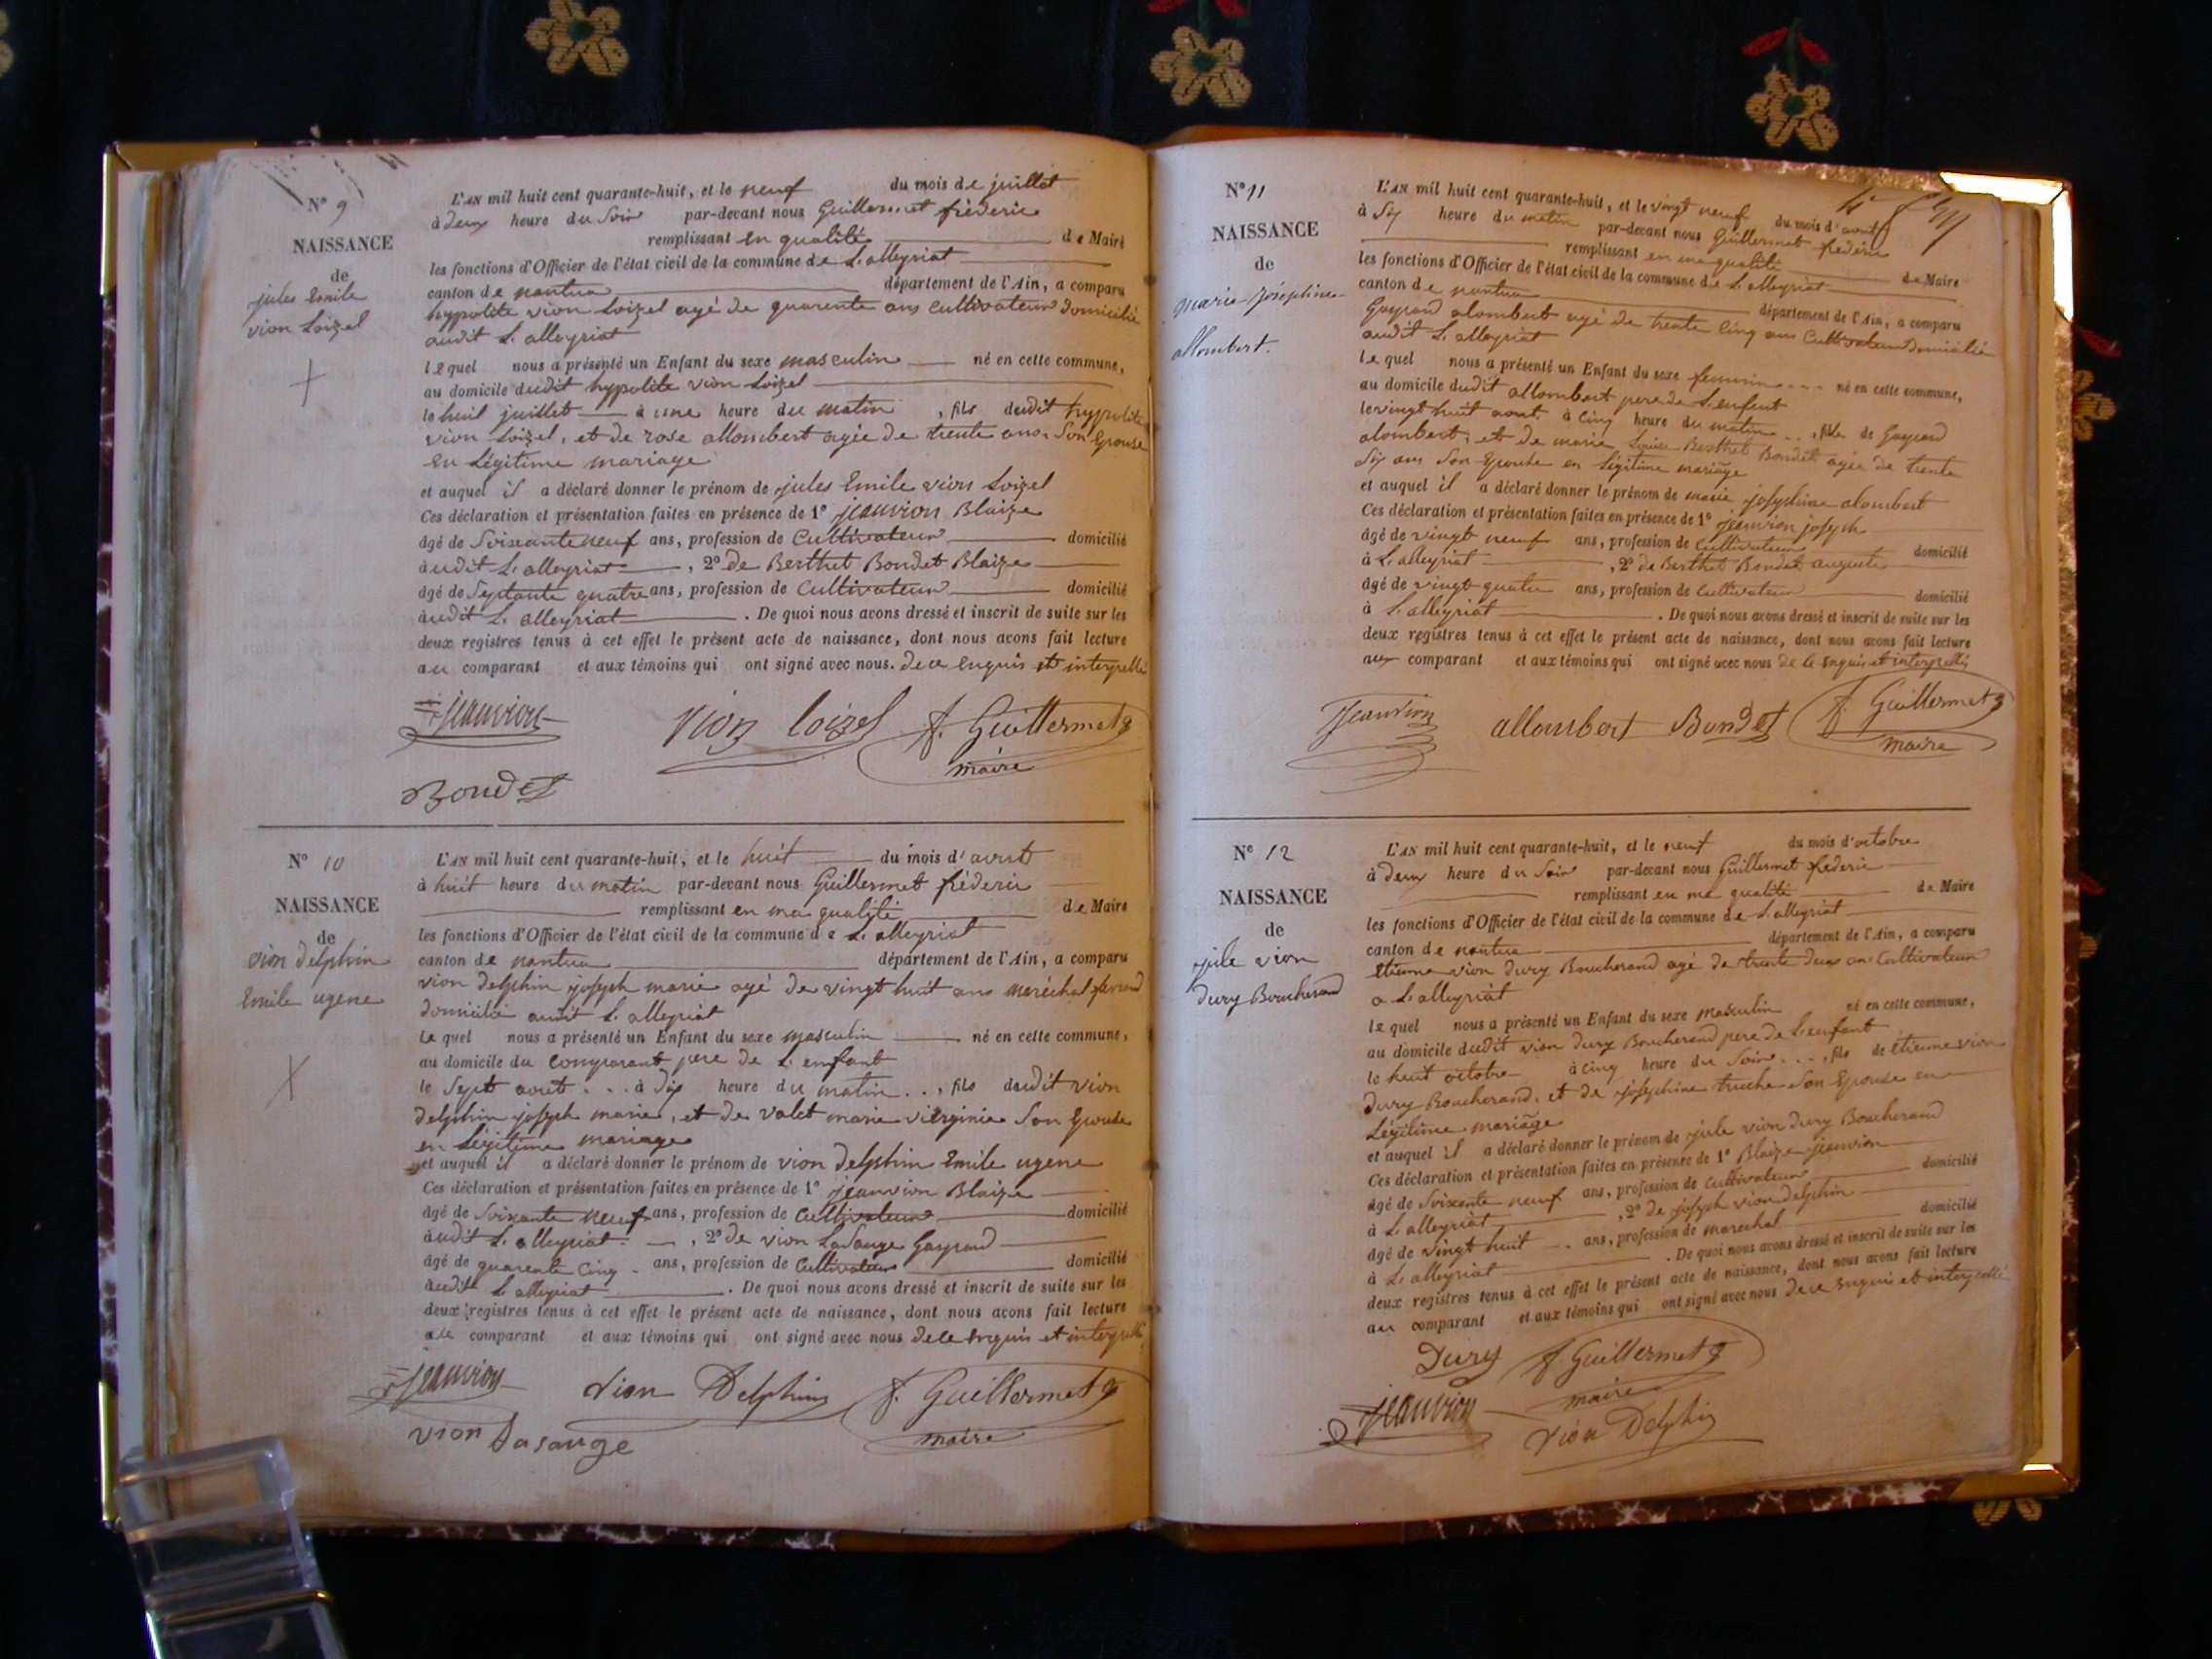 N° 9
NAISSANCE
de
jules Emile
vion Loizel
L'AN mil huit cent quarante-huit, et le neuf du mois de juillet
à deux heure du Soir par-devant nous Guillermet fréderic
remplissant en qualité de Maire
les fonctions d'Officier de l'état civil de la commune de L. alleyriat
canton de nantua département de l'Ain, a comparu
hypolite vion Loizel agé de quarente ans cultivateur domicilié
audit L. alleyriat
lequel nous a présenté un Enfant du sexe masculin né en cette commune,
au domicile dudit hypolite vion Loizel
le huit juillet à une heure du matin, fils dudit hypolite
vion Loizel, et de rose allombert agée de trente ans. Son Epouse
en Légitime mariage
et auquel il a déclaré donner le prénom de jules Emile vion Loizel
Ces déclaration et présentation faites en présence de 1° jeanvion Blaize
âgé de Soixante neuf ans, profession de Cultivateur domicilié
audit L. alleyriat, 2° de Berthet Bondet Blaize
âgé de Septante quatre ans, profession de Cultivateur domicilié
audit L. alleyriat. De quoi nous avons dressé et inscrit de suite sur les
deux registres tenus à cet effet le présent acte de naissance, dont nous avons fait lecture
au comparant et aux témoins qui ont signé avec nous. de ce Enquis et interpellé
jeanvion vion loizel f. Guillermet
maire
Bondet
N° 10
NAISSANCE
de
vion delphin
Emile ugene
L'AN mil huit cent quarante-huit, et le huit du mois d'avout
à huit heure du matin par-devant nous Guillermet fréderic
remplissant en ma qualité de Maire
les fonctions d'Officier de l'état civil de la commune de L. alleyriat
canton de nantua département de l'Ain, a comparu
vion delphin joseph marie agé de vingt huit ans maréchal ferrand
domicilié audit L. alleyriat
Lequel nous a présenté un Enfant du sexe masculin né en cette commune,
au domicile du comparant pere de L. enfant
le Sept aout à dix heure du matin, fils dudit vion
delphin joseph marie, et de valet marie vierginie Son Epouse
en Légitime mariage
et auquel il a déclaré donner le prénom de vion delphin Emile ugene
Ces déclaration et présentation faites en présence de 1° jeanvion Blaize
âgé de Soixante neuf ans, profession de Cultivateur domicilié
audit L. alleyriat, 2° de vion Lasauge Gaspard
âgé de quarente Cinq ans, profession de Cultivateur domicilié
audit L. alleyriat. De quoi nous avons dressé et inscrit de suite sur les
deux registres tenus à cet effet le présent acte de naissance, dont nous avons fait lecture
au comparant et aux témoins qui ont signé avec nous de ce Enquis et interpellé
jeanvion vion Delphin f. Guillermet
vion Lasauge maire
N° 11
NAISSANCE
de
marie joséphine
allombert.
L'AN mil huit cent quarante-huit, et le vingt neuf du mois d'aout
à Six heure du matin par-devant nous Guillermet fréderic
remplissant en ma qualité de Maire
les fonctions d'Officier de l'état civil de la commune de L. alleyriat
canton de nantua département de l'Ain, a comparu
Gaspard alombert agé de trente Cinq ans Cultivateur domicilié
audit L. alleyriat
Lequel nous a présenté un Enfant du sexe feminin né en cette commune,
au domicile dudit allombert pere de L. enfent
le vingt huit aout à Cinq heure du matin, fille de Gaspard
alombert, et de marie Louise Berthet Bondet agée de trente
Six ans Son Epouse en Légitime mariage
et auquel il a déclaré donner le prénom de marie josephine alombert
Ces déclaration et présentation faites en présence de 1° jeanvion joseph
âgé de vingt neuf ans, profession de Cultivateur domicilié
à L. alleyriat, 2° de Berthet Bondet auguste
âgé de vingt quatre ans, profession de Cultivateur domicilié
à L. alleyriat. De quoi nous avons dressé et inscrit de suite sur les
deux registres tenus à cet effet le présent acte de naissance, dont nous avons fait lecture
au comparant et aux témoins qui ont signé avec nous de ce Enquis et interpellés
Jeanvion allombert Bondet f. Guillermet
maire
N° 12
NAISSANCE
de
jule vion
dury Boucherand
L'AN mil huit cent quarante-huit, et le neuf du mois d'octobre
à deux heure du Soir par-devant nous Guillermet fréderic
remplissant en ma qualité de Maire
les fonctions d'Officier de l'état civil de la commune de L. alleyriat
canton de nantua département de l'Ain, a comparu
etienne vion dury Boucherand agé de trente deux ans Cultivateur
a L. alleyriat
lequel nous a présenté un Enfant du sexe masculin né en cette commune,
au domicile dudit vion dury Boucherand pere de L. enfant
le huit octobre à cinq heure du Soir, fils de etienne vion
dury Boucherand, et de josephine truche Son Epouse en
Légitime mariage
et auquel il a déclaré donner le prénom de jule vion dury Boucherand
Ces déclaration et présentation faites en présence de 1° Blaize jeanvion
âgé de Soixante neuf ans, profession de Cultivateur domicilié
à L. alleyriat, 2° de joseph vion delphin
âgé de vingt huit ans, profession de marechal domicilié
à L. alleyriat. De quoi nous avons dressé et inscrit de suite sur les
deux registres tenus à cet effet le présent acte de naissance, dont nous avons fait lecture
au comparant et aux témoins qui ont signé avec nous de ce Enquis et interpellé
Dury f. Guillermet
maire
jeanvion vion Delphin